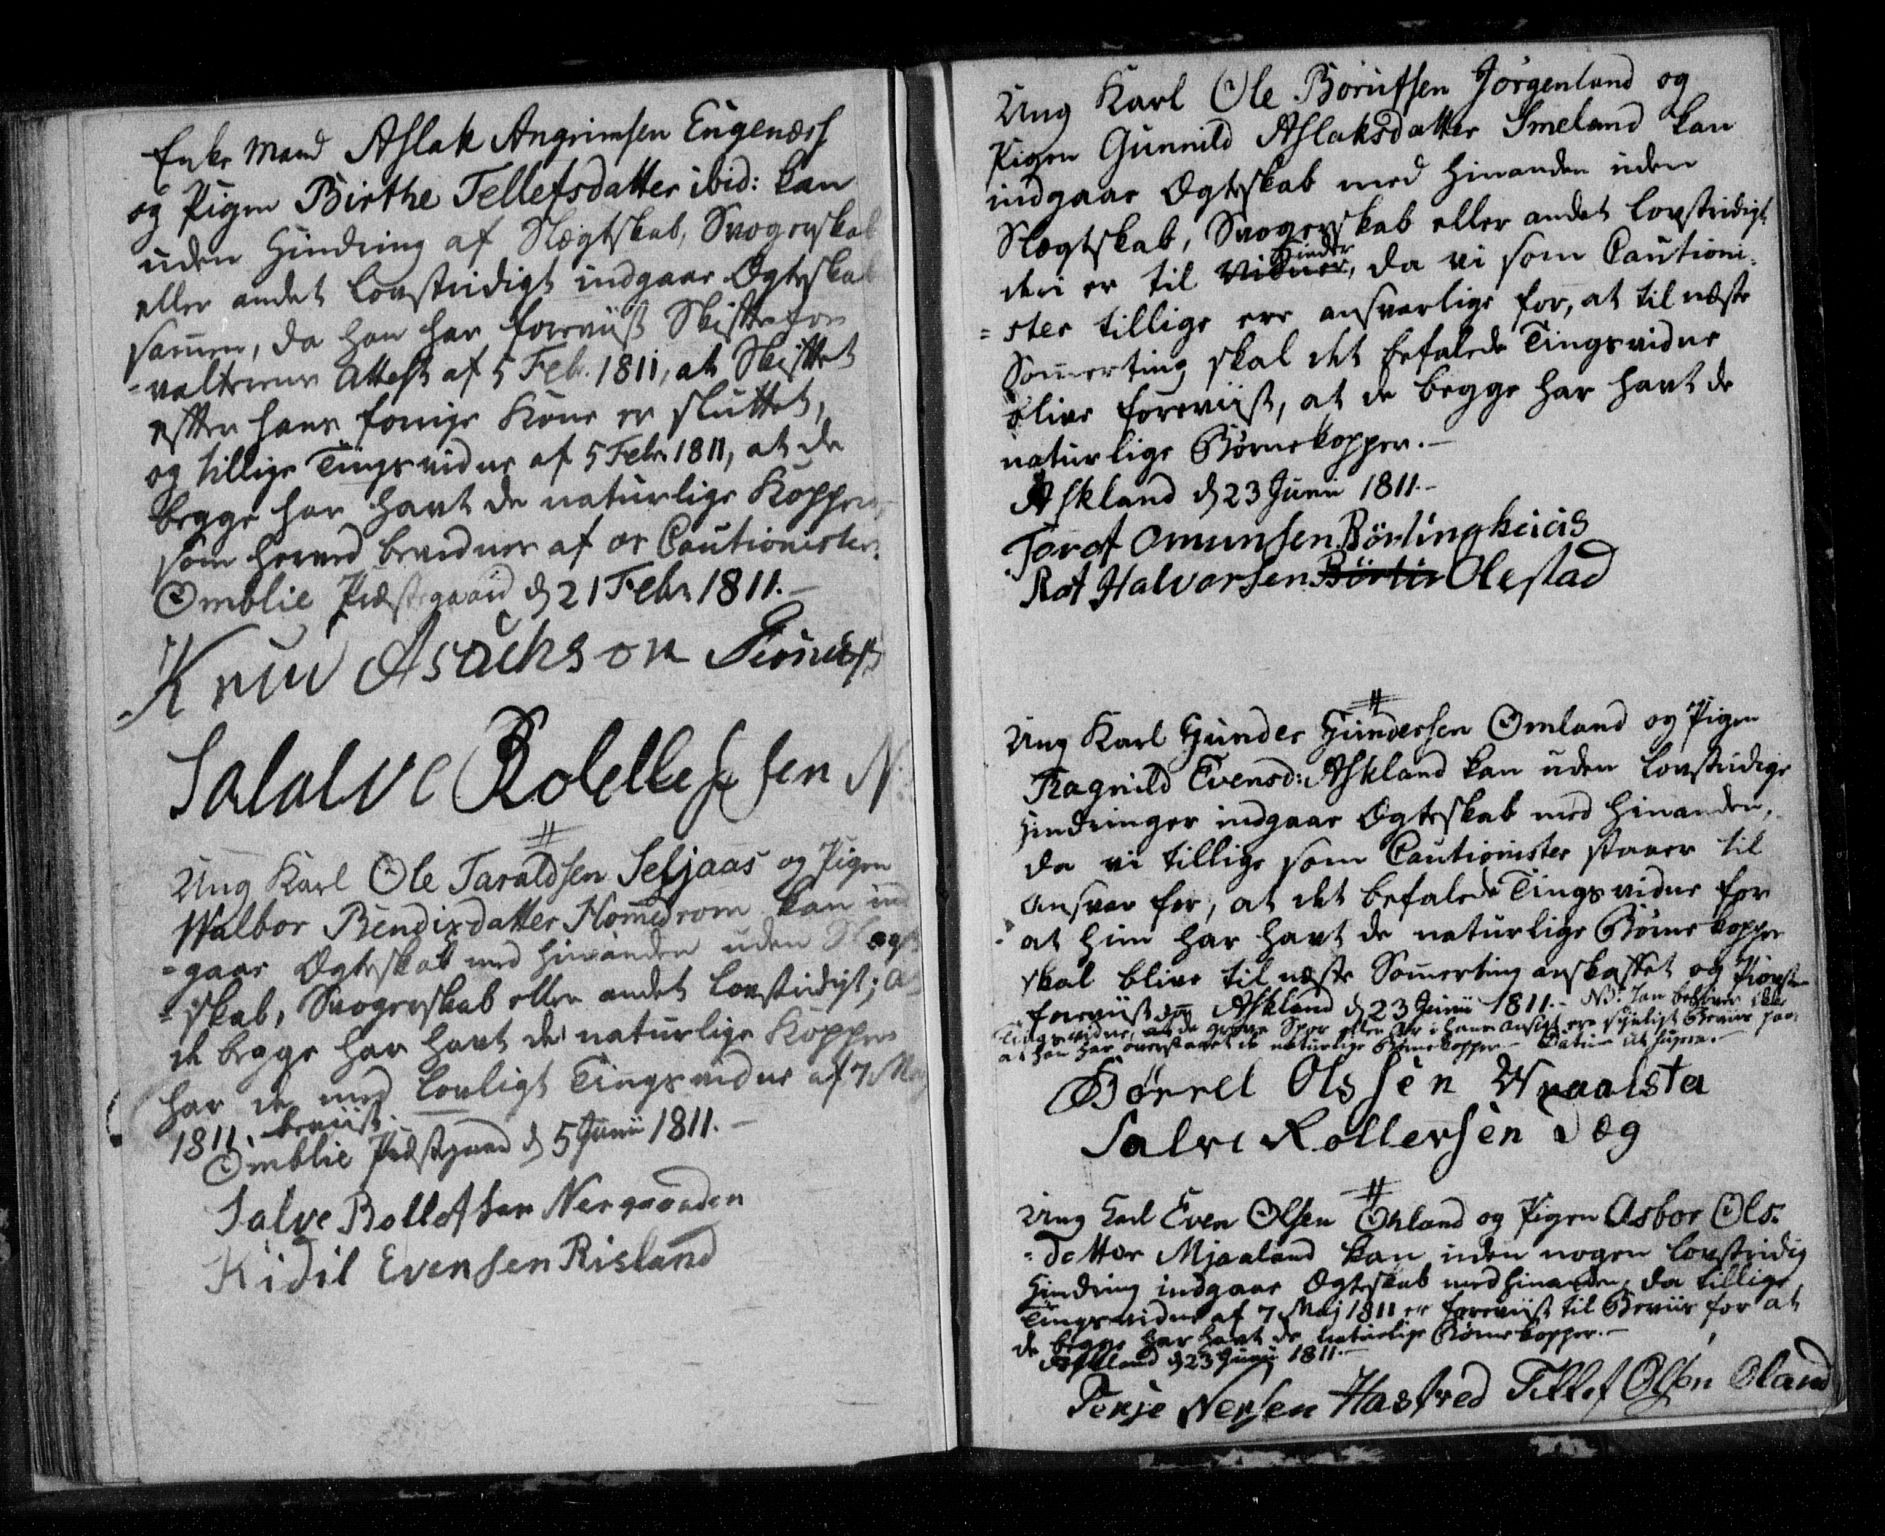 Enke Mand Aslak Angrimsen Eugenæss
og Pigen Birthe Tellefsdatter ibid: kan
uden Hindring af Slægtskab, Svogerskab
eller andet lovstridigt indgaae Ægteskab
sam̄en, da han har foreviist Skifte for
-valterens Attest af 5 Feb. 1811, at Skiftet
efter hans forrige Kone er sluttet,
og tillige Tingsvidne af 5 Febr. 1811, at de
begge har havt de naturlige Kopper,
som herved bevidnes af os Cautionister.
Omblie Præstegaard d 21 Febr 1811.-
Knud
Salalve
#
Ung Karl Ole Taraldsen Seljaas og Pigen
Walbor Bendixdatter Hom̄edrom kan ind
-gaae Ægteskab med hinanden uden Slægt
-skab, Svogerskab eller andet lovstridigt; at
de begge har havt de naturlige Kopper
har de med lovligt Tingsvidne af 7 Maj
1811. beviist.
Omblie Præstegaard d 5 Junii 1811.-
Salve Rollefsen Nergaarden
Kidil Evensen Risland
Ung Karl Ole Børufsen Jørgenland og
Pigen Gunnild Aslaksdatter Smeland kan
indgaae Ægteskab med hinanden uden
Slægtskab, Svogerskab eller andet lovstridigt
der er til Hinder, da vi som Cautioni-
=ster tillige ere ansvarlige for, at til næste
Som̄erting skal det befalede Tingsvidne
blive foreviist, at de begge har havt de
naturlige Børnekopper.-
Askland d 23 Junii 1811.-
Torof Omunsen Børlingheieis
Rof Halvorsen Olestad
#
Ung Karl Gunder Gundersen Omland og Pigen
Ragnild Evensd: Askland kan uden lovstridige
Hindringer indgaae Ægteskab med hinanden,
da vi tillige som Cautionister staaer til
Ansvar for, at det befalede Tingsvidne for
at hun har havt de naturlige Børnekopper
skal blive til næste Som̄erting anskaffet og
foreviist. Askland d 23 Junii 1811.- NB. behøver ikke
Tingsvidne, da de grove Spor efter i hans Ansigt ere synligt Beviis paa
at han har overstaaet de naturlige Børnekopper.- Datum ut supra.-
Børrel Olssen Wraalsta
Salve Rollevsen
#
Ung Karl Even Olsen Ohland og Pigen Asbor Ols-
-datter Mjaaland kan uden nogen lovstridig
Hindring indgaae Ægteskab med hinanden, da tillige
Tingsvidne af 7 Maj 1811 er foreviist til Beviis for at
de begge har havt de naturlige Børnekopper.-
Askland d 23 Junii 1811.-
Terje Nersen Hasfred Tellef Olsen Oland